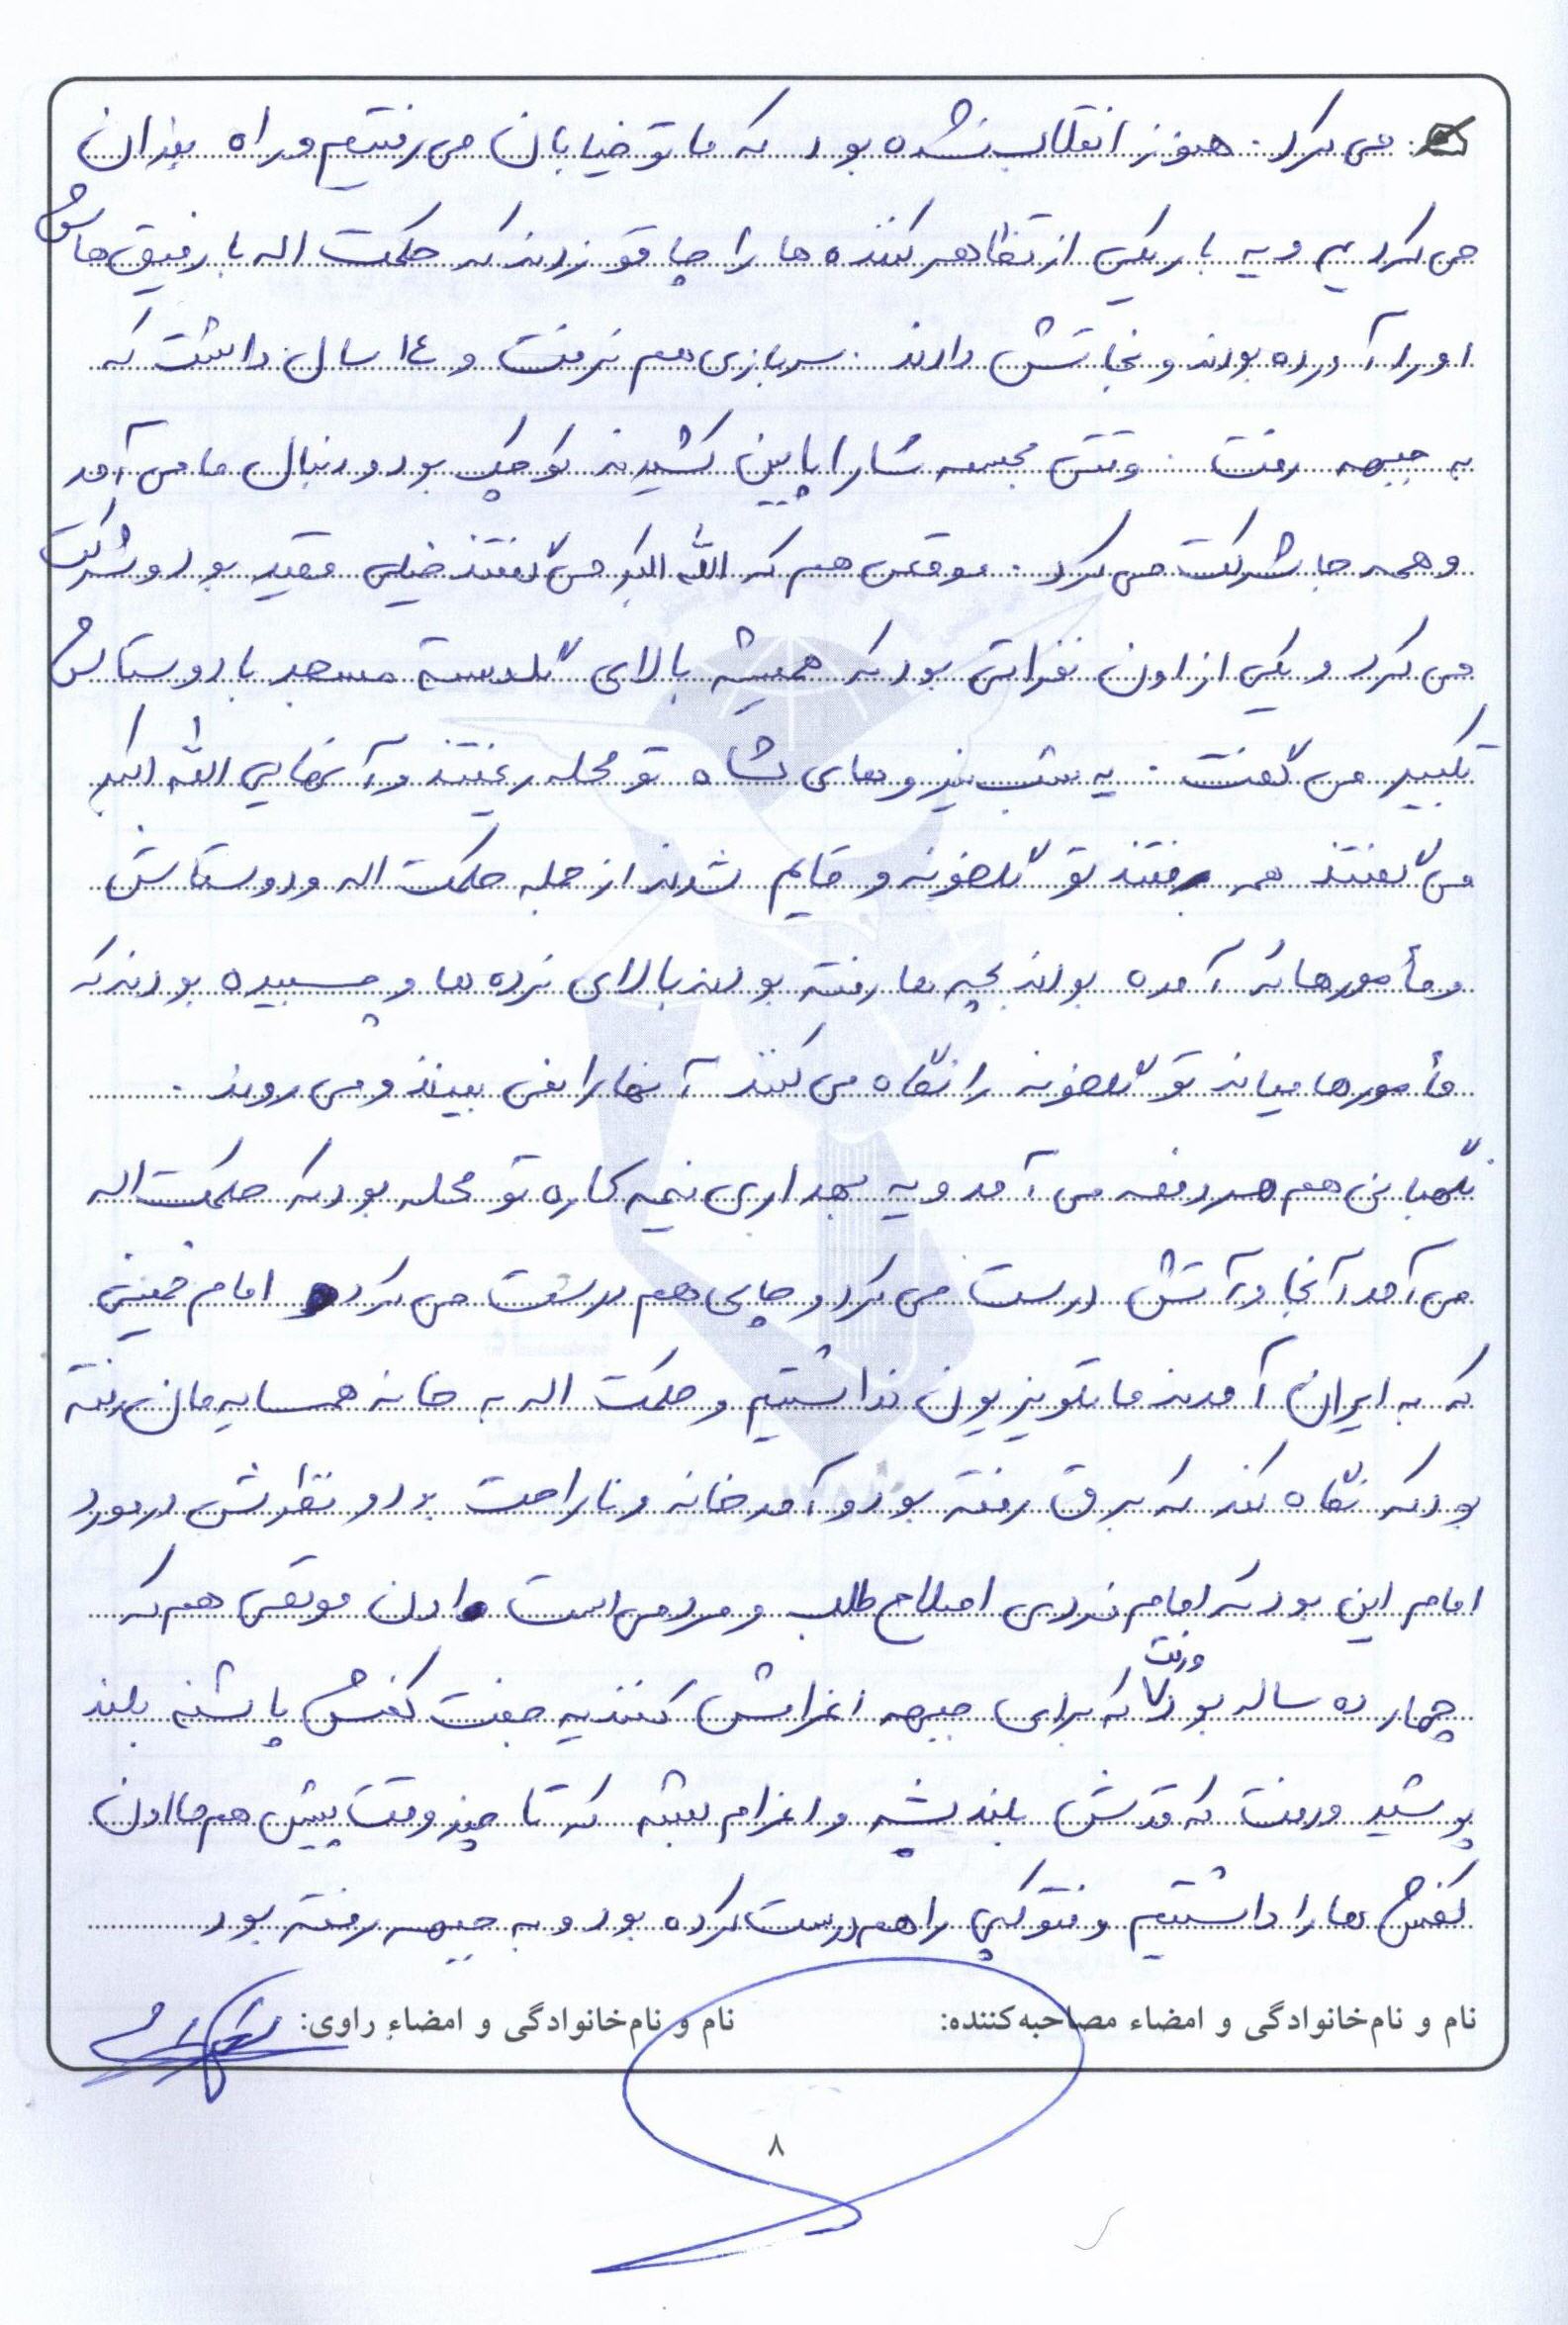 می کرد. هنوز انقلاب نشده بود که ما تو خیابان می رفتیم و راه بندان
می کردیم و یه بار یکی از تظاهر کننده ها را چاقو زدند که حکمت اله با رفیق هاش
او را آورده بودند و نجاتش دادند. سربازی هم نرفت و ١٤ سال داشت که
به جبهه رفت. وقتی مجسمه شاه را پایین کشیدند کوچک بود و دنبال ما می آمد
و همه جا شرکت می کرد. موقعی هم که الله اکبر می گفتند خیلی مقید بود و شرکت
می کرد و یکی از اون نفراتی بود که همیشه بالای گلدسته مسجد با دوستاش
تکبیر می گفت. یه شب نیروهای شاه تو محله ریختند و آنهایی الله اکبر
می گفتند همه رفتند تو گلخونه و قایم شدند از جمله حکمت اله و دوستاش
و مأمورها که آمده بودند بچه ها رفته بودند بالای نرده ها و چسبیده بودند که
مأمورها میاند تو گلخونه را نگاه می کنند آنها را نمی بینند و می روند.
نگهبانی هم هر دفعه می آمد و یه بهداری نیمه کاره تو محله بود که حکمت اله
می آمد آنجا و آتش درست می کرد و چایی هم درست می کرد امام خمینی
که به ایران آمدند ما تلویزیون نداشتیم و حکمت اله به خانه همسایه مان رفته
بود که نگاه کند که برق رفته بود و آمد خانه و ناراحت بود و نظرش در مورد
امام این بود که امام فردی اصلاح طلب و مردمی است اون موقعی هم که
چهارده ساله بود و رفت که برای جبهه اعزامش کنند یه جفت کفش پاشنه بلند
پوشید و رفت که قدش بلند بشه و اعزام بشه که تا چند وقت پیش هم ما اون
کفش ها را داشتیم و فتوکپی را هم درست کرده بود و به جبهه رفته بود
نام و نام‌خانوادگی و امضاء مصاحبه‌کننده: نام و نام‌خانوادگی و امضاء راوی:
٨